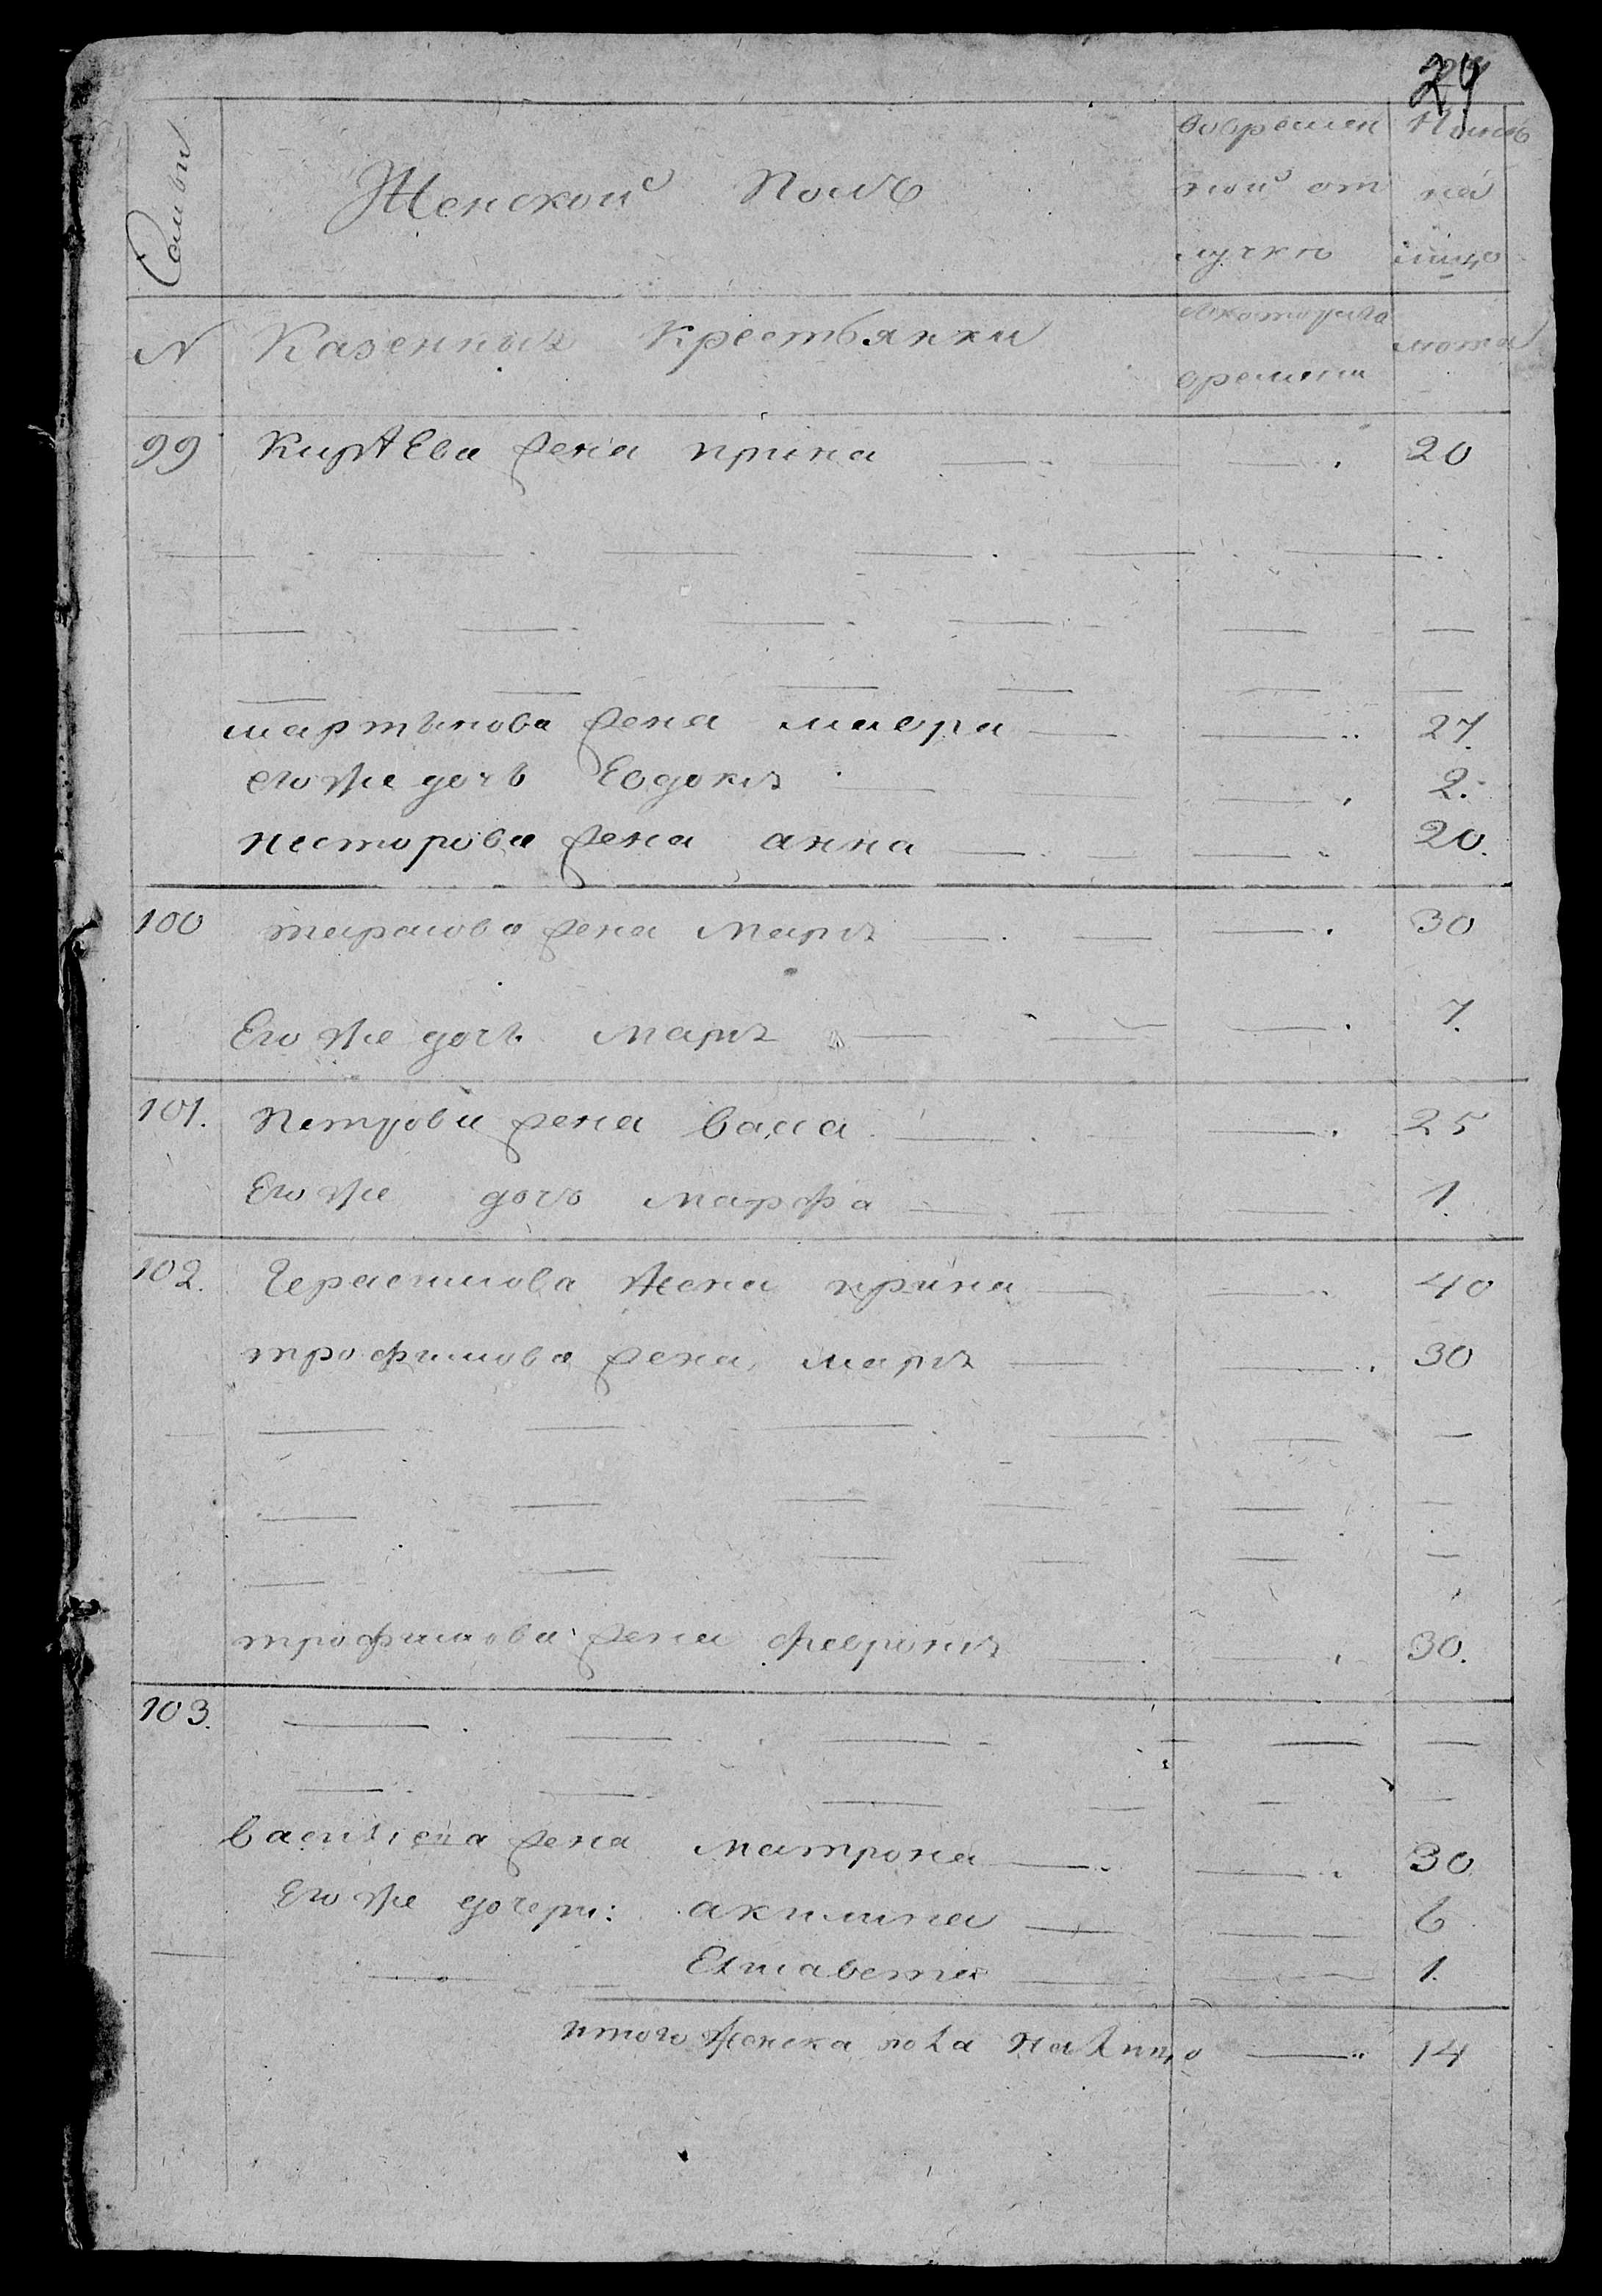 24
Семьи
Женской Полъ
вовремен
ной от
лучкѣ
Нынѣ
на
лицо
N Казенныя Крестьянки
скоторого
времени
лета
99 КирѢева жена ирина 20
мартынова жена мавра 27.
его же дочь Евдокия 2.
несторова жена анна 20.
100 тарасова жена Мария 30
Его же дочь Мария 7.
101. Петрова жена васса 25
Его же дочь марфа 1.
102. Герасимова жена ирина 40
трофимова жена мария 30
трофимова жена феврония 30.
103.
Василиева жена матрона 30
Его же дочери: акилина 6
Елисавета 1.
итого женска пола На лицо 14